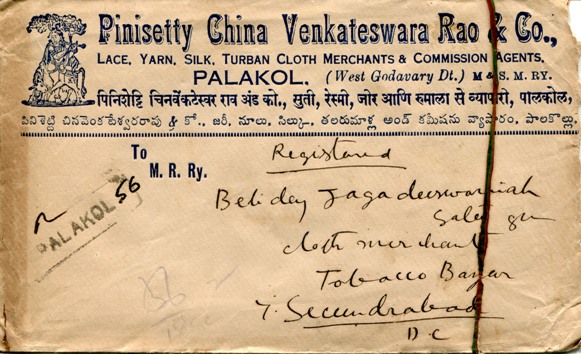 Pinisetty China Venkateswara Rao & Co.,
LACE, YARN, SILK, TURBAN CLOTH MERCHANTS & COMMISSION AGENTS,
PALAKOL. (West Godavary Dt.) M & S. M. RY.
पिनिशेट्टि चिनवेंकटेस्वर राव अंड को., सुती, रेस्मी, जोर आणि रुमाला से व्यापारी, पालकोल,
పినిశెట్టి చినవెంకటేశ్వరరావు & కో., జరీ, నూలు, సిల్కు, తలరుమాళ్ల అండ్ కమీషను వ్యాపారం, పాలకొల్లు.
To
Registered
M. R. Ry.
PALAKOL 56
Jagadeeswariah
cloth merchant
Tobacco Bazar
Secundrabad
D-C